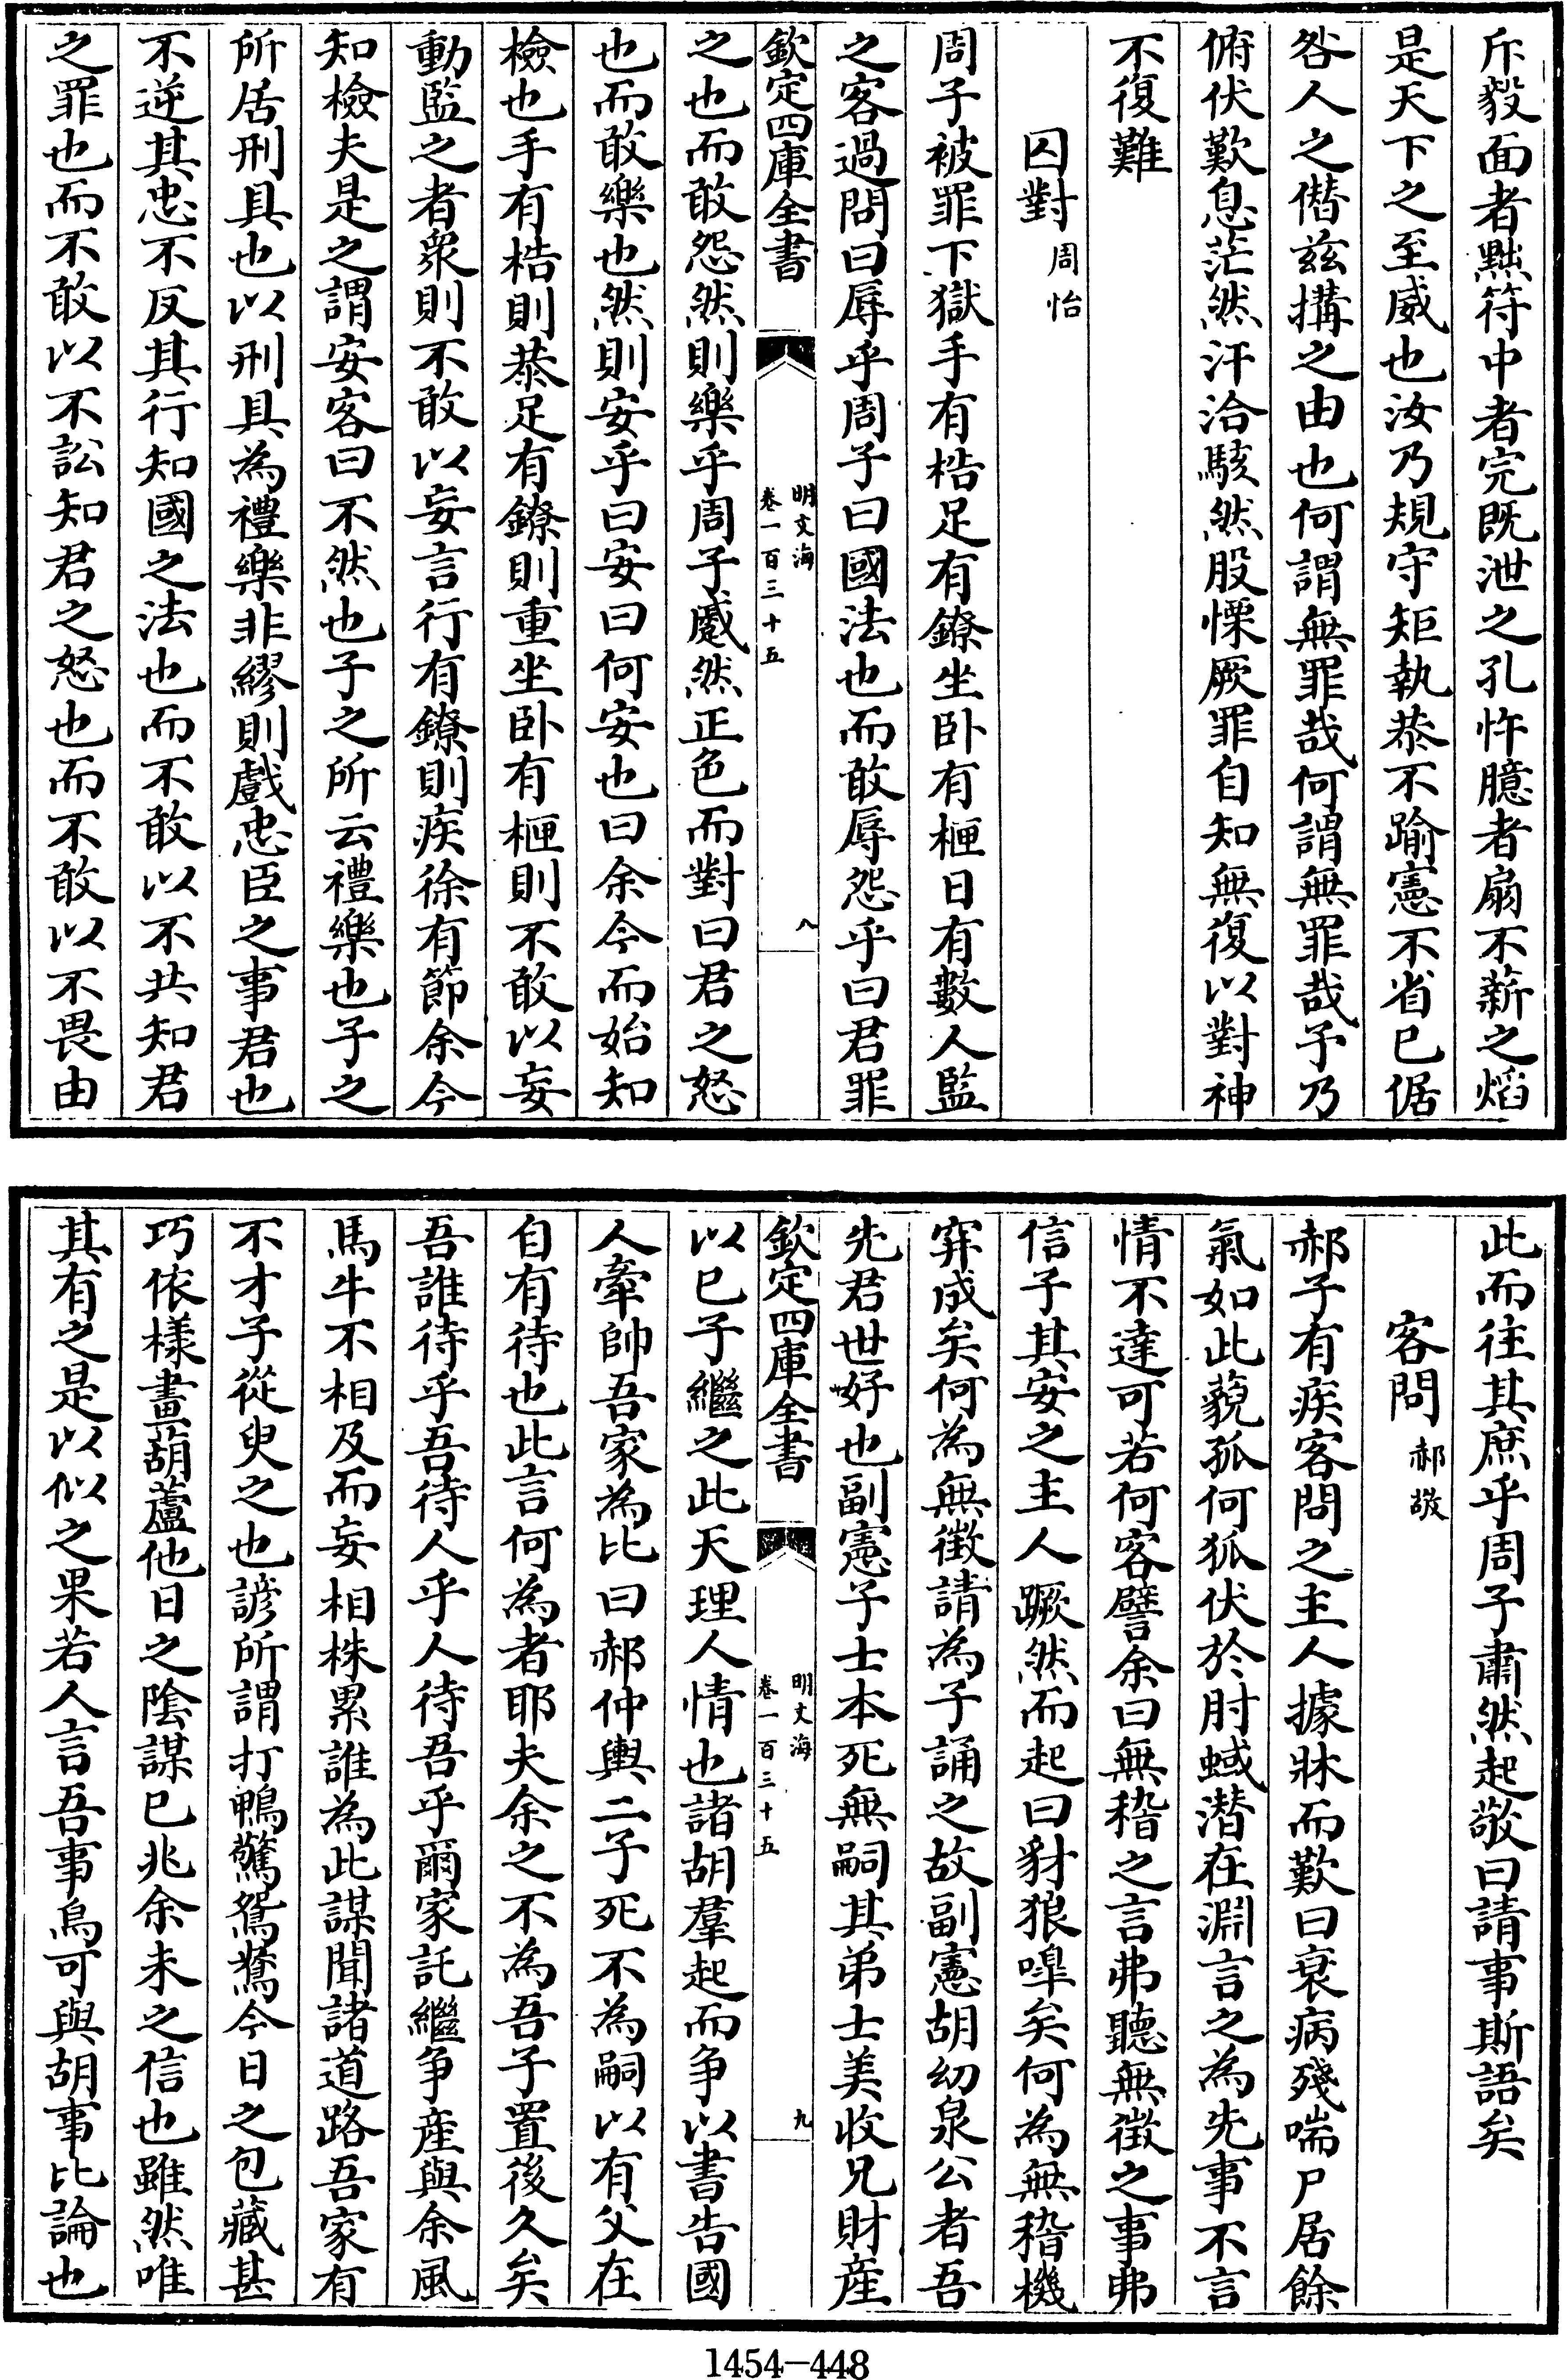 斥毅面者黜符中者完既泄之孔忤臆者扇不薪之熖
是天下之至威也汝乃規守矩執恭不踰憲不省已倨
咎人之僣兹搆之由也何謂無罪哉何謂無罪哉予乃
俯伏歎息茫然汗洽駭然股慄厥罪自知無復以對神
不復難
囚對周怡
周子被罪下獄手有梏足有鐐坐卧有柙日有數人監
之客過問曰辱乎周子曰國法也而敢辱怨乎曰君罪
欽定四庫全書
明文海
卷一百三十五
八
之也而敢怨然則樂乎周子蹙然正色而對曰君之怒
也而敢樂也然則安乎曰安曰何安也曰余今而始知
檢也手有梏則恭足有鐐則重坐卧有柙則不敢以妄
動監之者衆則不敢以妄言行有鐐則疾徐有節余今
知檢夫是之謂安客曰不然也子之所云禮樂也子之
所居刑具也以刑具為禮樂非繆則戲忠臣之事君也
不逆其忠不反其行知國之法也而不敢以不共知君
之罪也而不敢以不訟知君之怒也而不敢以不畏由
此而往其庶乎周子肅然起敬曰請事斯語矣
客問郝敬
郝子有疾客問之主人據牀而歎曰衰病殘喘尸居餘
氣如此藐孤何狐伏於肘蜮潛在淵言之為先事不言
情不達可若何客譬余曰無稽之言弗聽無徵之事弗
信子其安之主人蹶然而起曰豺狼嘷矣何為無稽機
穽成矣何為無徵請為子誦之故副憲胡幼泉公者吾
先君世好也副憲子士本死無嗣其弟士美收兄財産
欽定四庫全書
明文海
卷一百三十五
九
以已子繼之此天理人情也諸胡羣起而争以書告國
人牽帥吾家為比曰郝仲輿二子死不為嗣以有父在
自有待也此言何為者耶夫余之不為吾子置後久矣
吾誰待乎吾待人乎人待吾乎爾家託繼争産與余風
馬牛不相及而妄相株累誰為此謀聞諸道路吾家有
不才子從臾之也諺所謂打鴨驚鴛鴦今日之包藏甚
巧依樣畫葫蘆他日之隂謀已兆余未之信也雖然唯
其有之是以似之果若人言吾事烏可與胡事比論也
1454-448